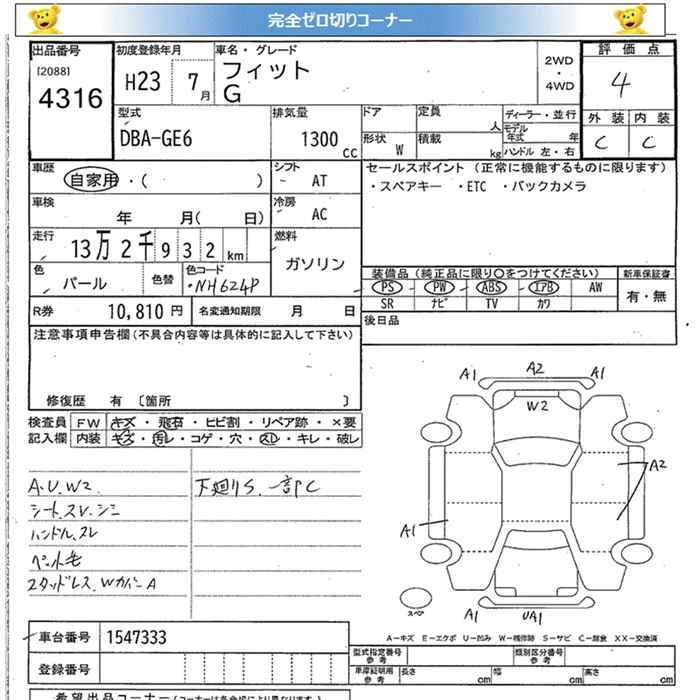 完全ゼロ切りコーナー
出品番号 初度登録年月 車名・グレード 評価点
[2088] フィット 2WD
4316 H23 7月 G ・ 4WD 4
型式 排気量 ドア 定員 人 ディーラー・並行 外装 内装
DBA-GE6 1300cc 形状 W 積載 kg モデル年式 年 C C
ハンドル 左・右
車歴 シフト セールスポイント (正常に機能するものに限ります)
自家用・( ) AT ・スペアキー ・ETC ・バックカメラ
車検 冷房
年 月( 日) AC
走行 燃料
13万2千932km ガソリン
色 色替 色コード 装備品 (純正品に限り○をつけてください) 新車保証書
パール ・NH624P PS PW ABS エアB AW 有・無
SR ナビ TV カワ
R券 10,810円 名変通知期限 月 日 後日品
注意事項申告欄 (不具合内容等は具体的に記入して下さい)
修復歴 有 〔箇所 〕
検査員 FW キズ・飛石・ヒビ割・リペア跡・×要
記入欄 内装 キズ・汚レ・コゲ・穴・スレ・キレ・破レ
A.U.W2 下廻りS.一部C
シート.スレ.シミ
ハンドル.スレ
ペット毛
スタッドレス.Wカバー A
A1 A2 A1
W2
A2
A1
スペア A1 UA1 A1
A-キズ E-エクボ U-凹み W-補修跡 S-サビ C-腐食 XX-交換済
車台番号 1547333
登録番号
型式指定番号 参考 類別区分番号 参考
車庫証明用 参考 長さ cm 幅 cm 高さ cm
希望出品コーナー